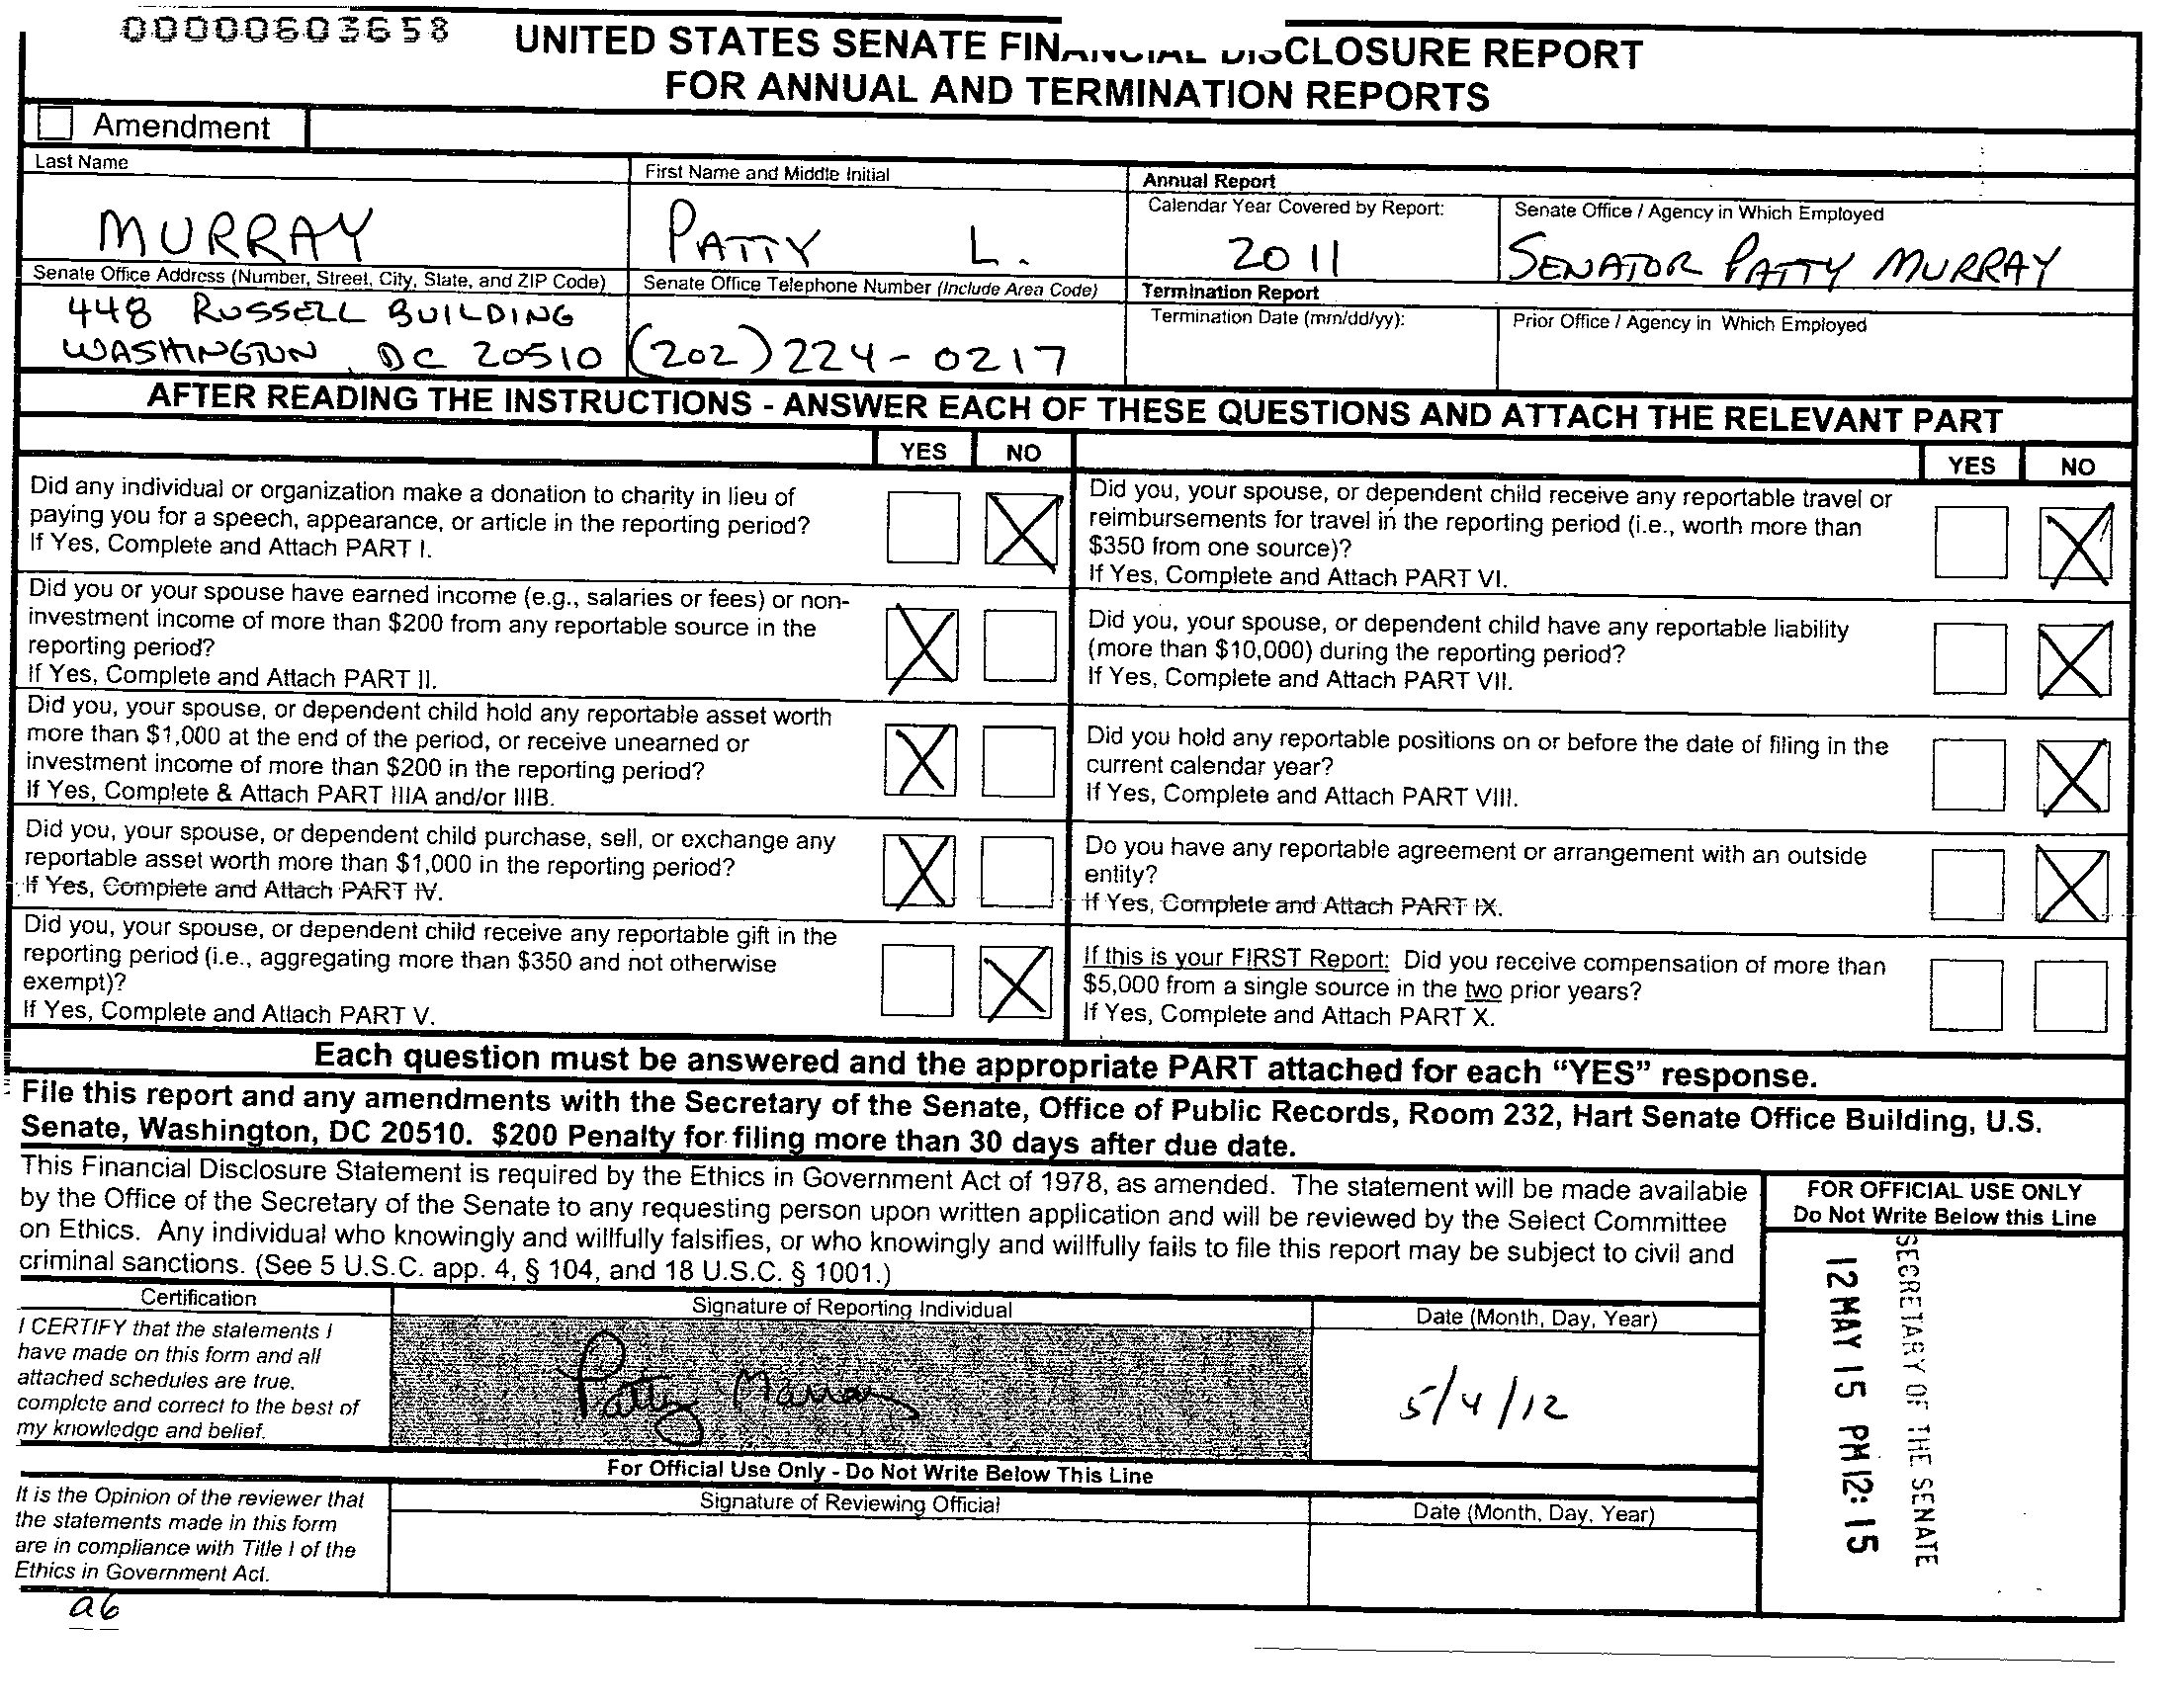 00000603658
UNITED STATES SENATE FINANCIAL DISCLOSURE REPORT
FOR ANNUAL AND TERMINATION REPORTS
Amendment
Last Name
MURRAY
First Name and Middle Initial
PATTY L.
Annual Report
Calendar Year Covered by Report:
2011
Senate Office / Agency in Which Employed
SENATOR PATTY MURRAY
Senate Office Address (Number, Street, City, State, and ZIP Code)
448 RUSSELL BUILDING
WASHINGTON, DC 20510
Senate Office Telephone Number (Include Area Code)
(202) 224-0217
Termination Report
Termination Date (mm/dd/yy):
Prior Office / Agency in Which Employed
AFTER READING THE INSTRUCTIONS - ANSWER EACH OF THESE QUESTIONS AND ATTACH THE RELEVANT PART
YES NO
Did any individual or organization make a donation to charity in lieu of
paying you for a speech, appearance, or article in the reporting period?
If Yes, Complete and Attach PART I.
X
Did you or your spouse have earned income (e.g., salaries or fees) or non-
investment income of more than $200 from any reportable source in the
reporting period?
If Yes, Complete and Attach PART II.
X
Did you, your spouse, or dependent child hold any reportable asset worth
more than $1,000 at the end of the period, or receive unearned or
investment income of more than $200 in the reporting period?
If Yes, Complete & Attach PART IIIA and/or IIIB.
X
Did you, your spouse, or dependent child purchase, sell, or exchange any
reportable asset worth more than $1,000 in the reporting period?
If Yes, Complete and Attach PART IV.
X
Did you, your spouse, or dependent child receive any reportable gift in the
reporting period (i.e., aggregating more than $350 and not otherwise
exempt)?
If Yes, Complete and Attach PART V.
X
YES NO
Did you, your spouse, or dependent child receive any reportable travel or
reimbursements for travel in the reporting period (i.e., worth more than
$350 from one source)?
If Yes, Complete and Attach PART VI.
X
Did you, your spouse, or dependent child have any reportable liability
(more than $10,000) during the reporting period?
If Yes, Complete and Attach PART VII.
X
Did you hold any reportable positions on or before the date of filing in the
current calendar year?
If Yes, Complete and Attach PART VIII.
X
Do you have any reportable agreement or arrangement with an outside
entity?
If Yes, Complete and Attach PART IX.
X
If this is your FIRST Report: Did you receive compensation of more than
$5,000 from a single source in the two prior years?
If Yes, Complete and Attach PART X.
Each question must be answered and the appropriate PART attached for each “YES” response.
File this report and any amendments with the Secretary of the Senate, Office of Public Records, Room 232, Hart Senate Office Building, U.S.
Senate, Washington, DC 20510. $200 Penalty for filing more than 30 days after due date.
This Financial Disclosure Statement is required by the Ethics in Government Act of 1978, as amended. The statement will be made available
by the Office of the Secretary of the Senate to any requesting person upon written application and will be reviewed by the Select Committee
on Ethics. Any individual who knowingly and willfully falsifies, or who knowingly and willfully fails to file this report may be subject to civil and
criminal sanctions. (See 5 U.S.C. app. 4, § 104, and 18 U.S.C. § 1001.)
FOR OFFICIAL USE ONLY
Do Not Write Below this Line
SECRETARY OF THE SENATE
12 MAY 15 PM 12: 15
Certification
I CERTIFY that the statements I
have made on this form and all
attached schedules are true,
complete and correct to the best of
my knowledge and belief.
Signature of Reporting Individual
Patty Murray
Date (Month, Day, Year)
5/4/12
For Official Use Only - Do Not Write Below This Line
It is the Opinion of the reviewer that
the statements made in this form
are in compliance with Title I of the
Ethics in Government Act.
Signature of Reviewing Official
Date (Month, Day, Year)
ab